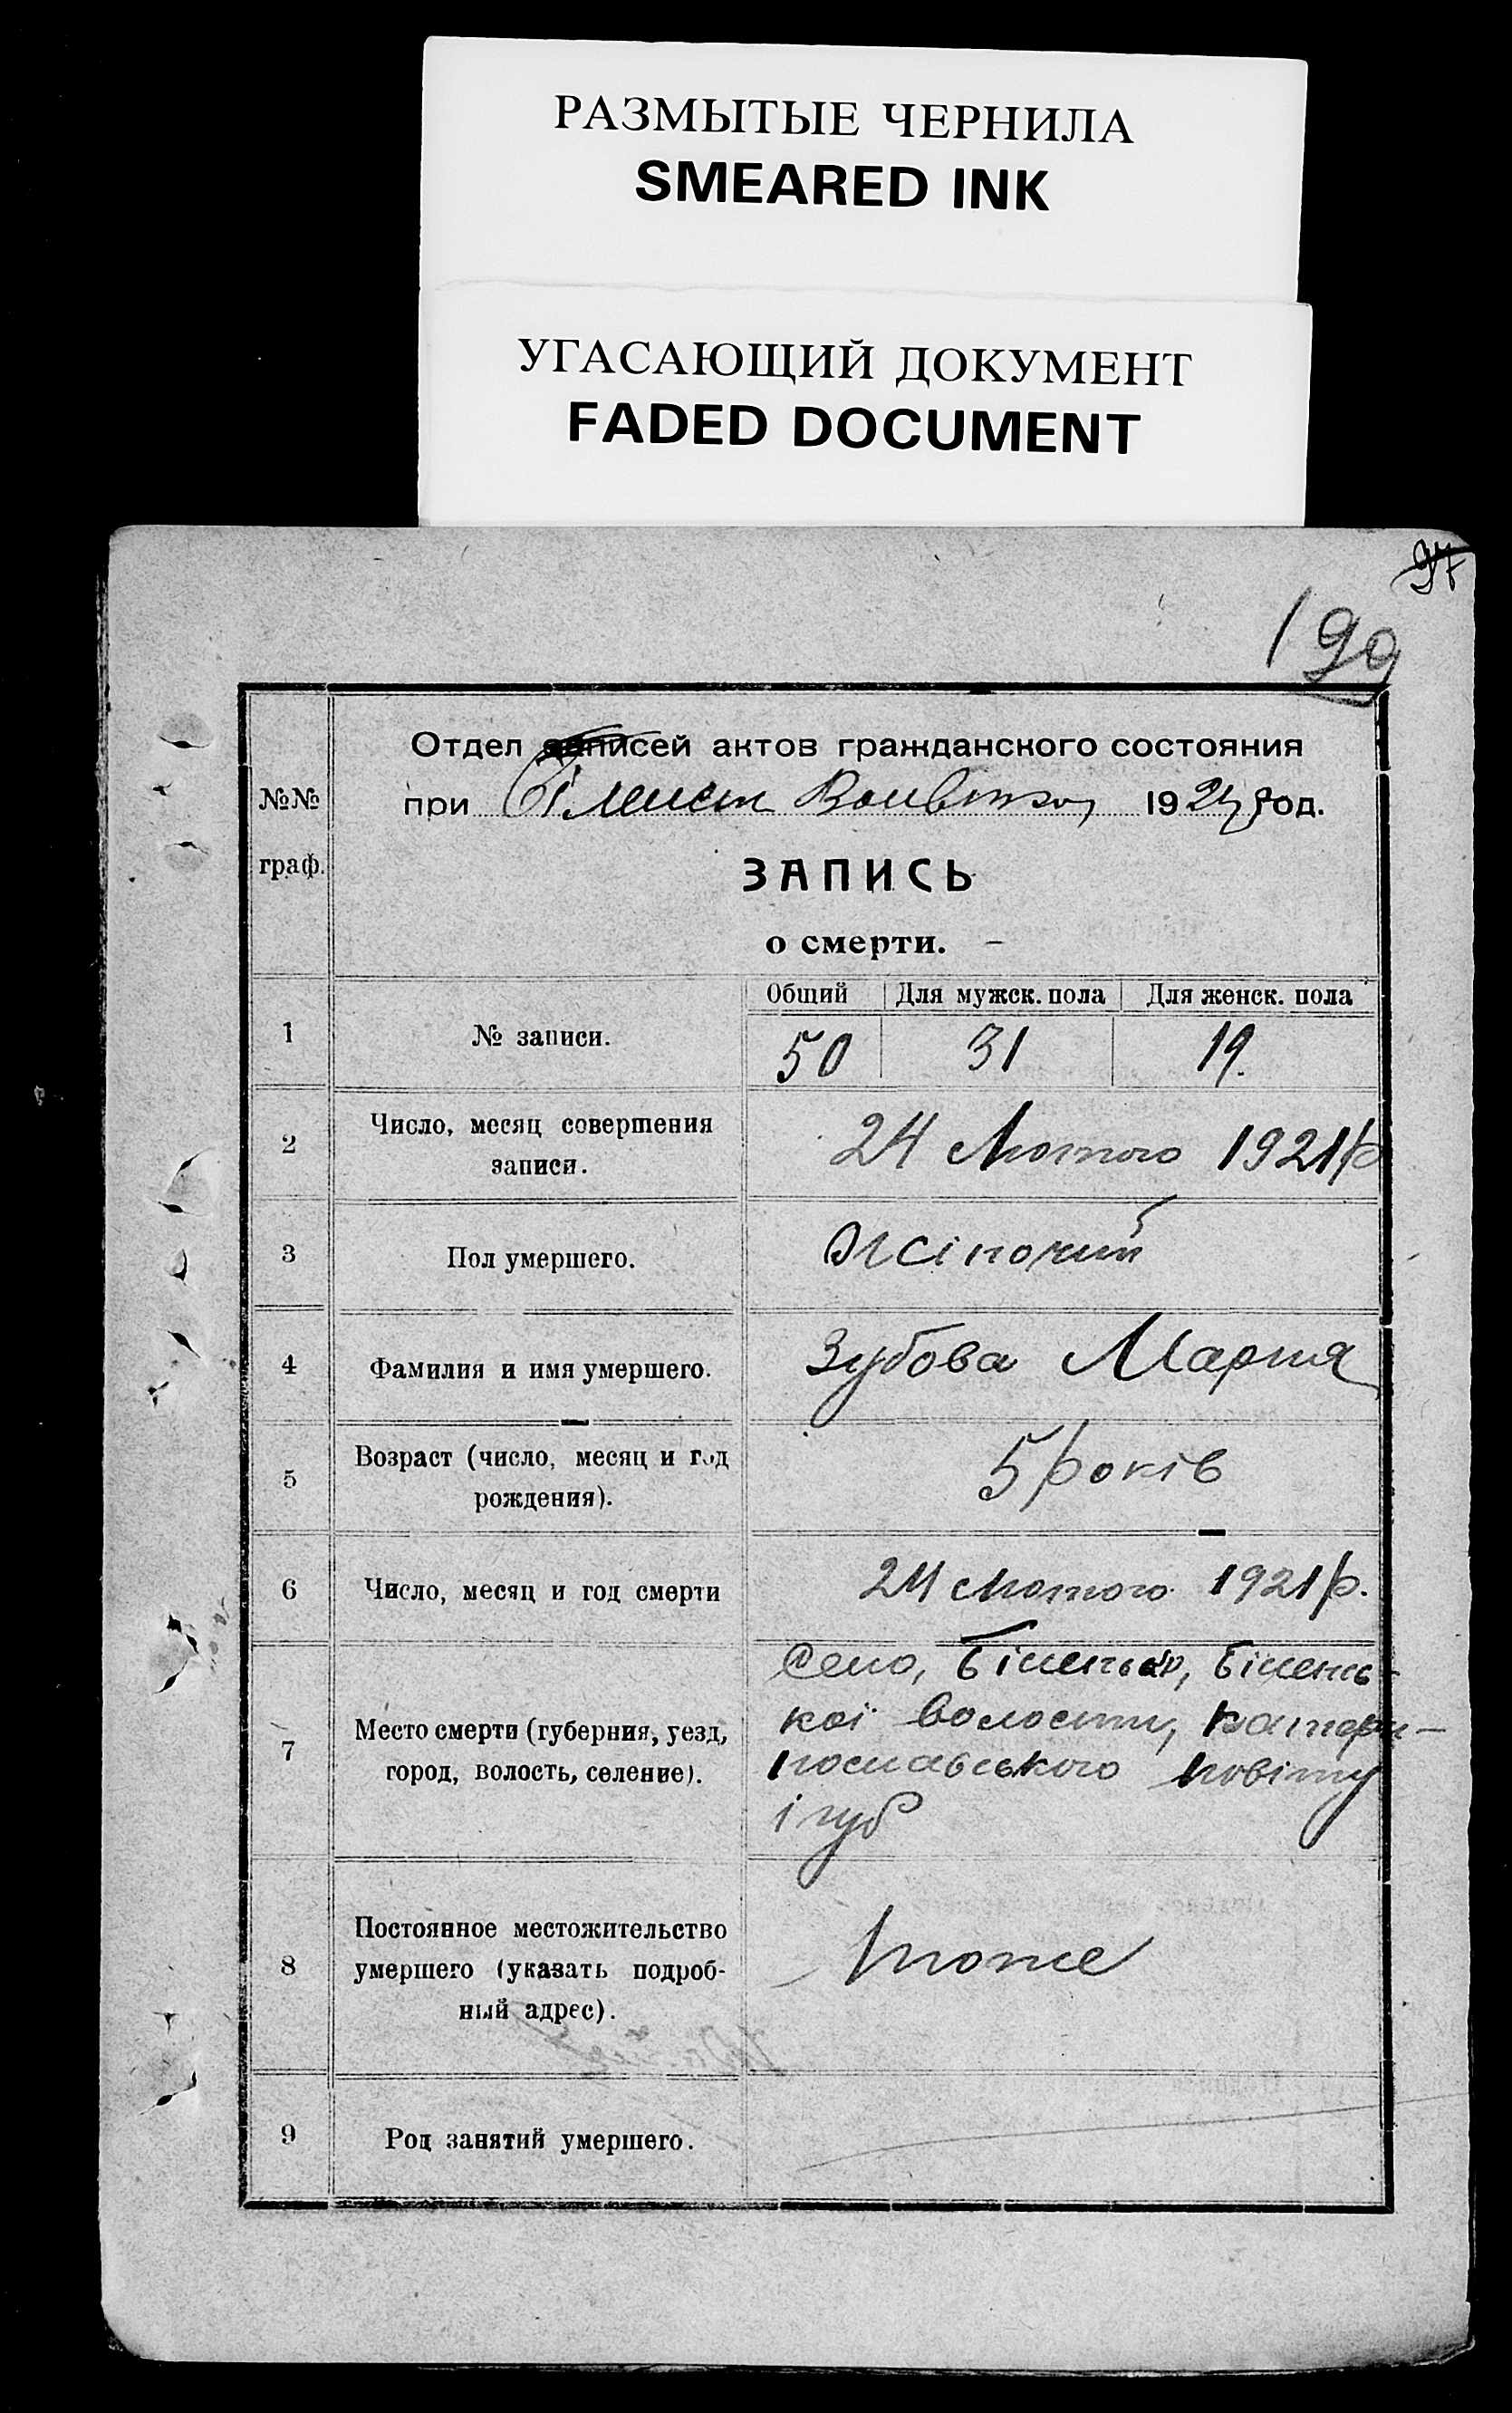 РАЗМЫТЫЕ ЧЕРНИЛА
SMEARED INK
УГАСАЮЩИЙ ДОКУМЕНТ
FADED DOCUMENT
97
199
№№ граф.
Отдел записей актов гражданского состояния
при 1921 год.
ЗАПИСЬ
о смерти.
Общий Для мужск. пола Для женск. пола
1 № записи. 50 31 19.
2 Число, месяц совершения
записи.
24 Лютого 1921 р
3 Пол умершего. Жіночий
4 Фамилия и имя умершего. Зубова Мария
5 Возраст (число, месяц и год
рождения).
5 років
6 Число, месяц и год смерти 24 Лютого 1921 р.
7 Место смерти (губерния, уезд,
город, волость, селение).
Село, Біленьке, Білень-
кої волости, Катери-
нославського повіту
і губ
8 Постоянное местожительство
умершего (указать подроб-
ный адрес).
тоже
9 Род занятий умершего.